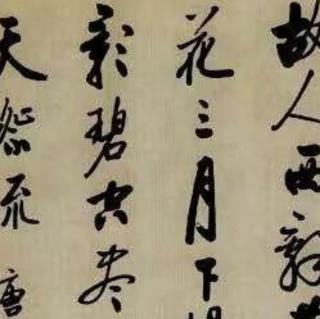 故人西辭
花三月下
影碧空尽
天際流 唐